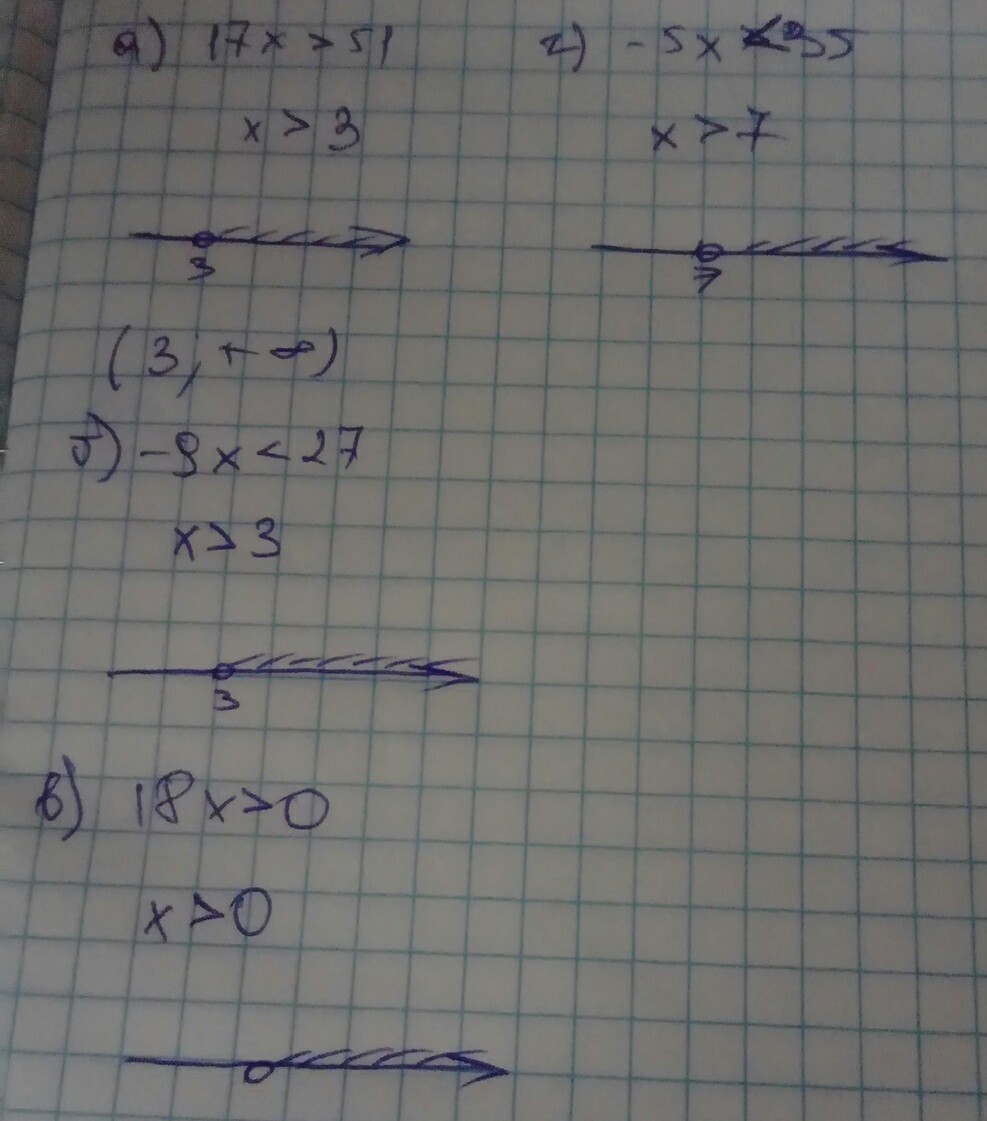 а) 17x > 51
x > 3
3
(3; + ∞)
б) -9x < 27
x > 3
3
в) 18x > 0
x > 0
г) -5x < 35
x > 7
7